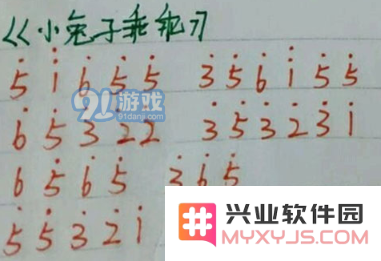 《小兔子乖乖》
5̇ 1̇ 6̇ 5̇ 5̇ 3̇ 5̇ 6̇ 1̇ 5̇ 5̇
6̇ 5̇ 3̇ 2̇ 2̇ 3̇ 5̇ 3̇ 2̇ 3̇ 1̇
6̇ 5̇ 6̇ 5̇ 3̇ 6̇ 5̇
5̇ 5̇ 3̇ 2̇ 1̇
91游戏
91danji.com
兴业软件园
MYXYJS.COM